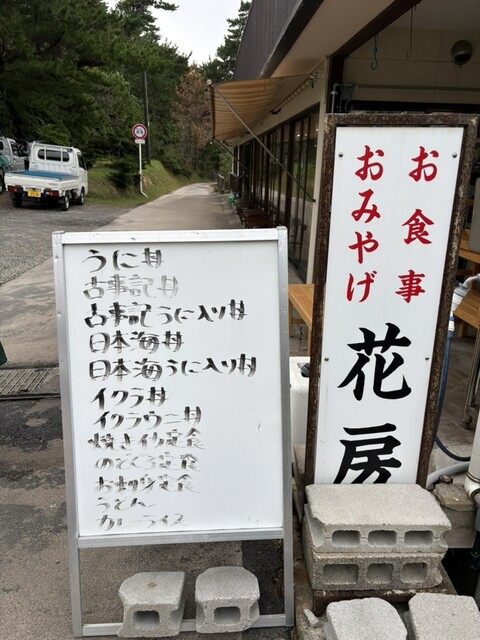 うに丼
古事記丼
古事記うに入り丼
日本海丼
日本海うに入り丼
イクラ丼
イクラウニ丼
焼きイカ定食
のどぐろ定食
お刺身定食
うどん
カレーライス
お食事
おみやげ
花房